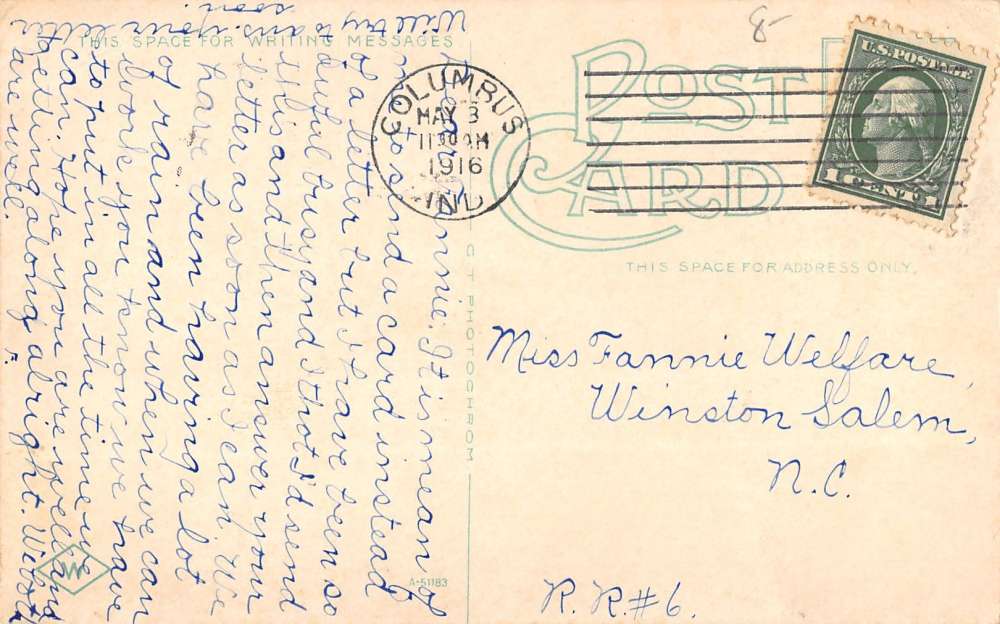 8-
THIS SPACE FOR WRITING MESSAGES
POST
CARD
COLUMBUS
MAY 3
1130 AM
1916
IND.
U.S. POSTAGE
1 CENT 1
THIS SPACE FOR ADDRESS ONLY.
C T PHOTOCHROM
A-51183
Miss Fannie Welfare,
Winston Salem,
N.C.
R.R.#6.
Fannie: It is mean of
me to send a card instead
of a letter but I have been so
awful busy and I thot I'd send
this and then answer your
letter as soon as I can. We
have been having a lot
of rain and when we can
work you know we have
to put in all the time we
can. Hope you are well and
getting along alright. We
are well.
Will try to ans. your letter
soon.